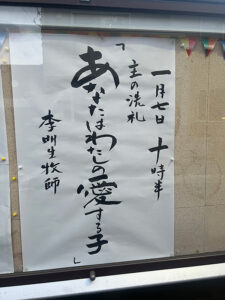 一月七日 十時半
主の洗礼
「あなたはわたしの愛する子」
李明生牧師